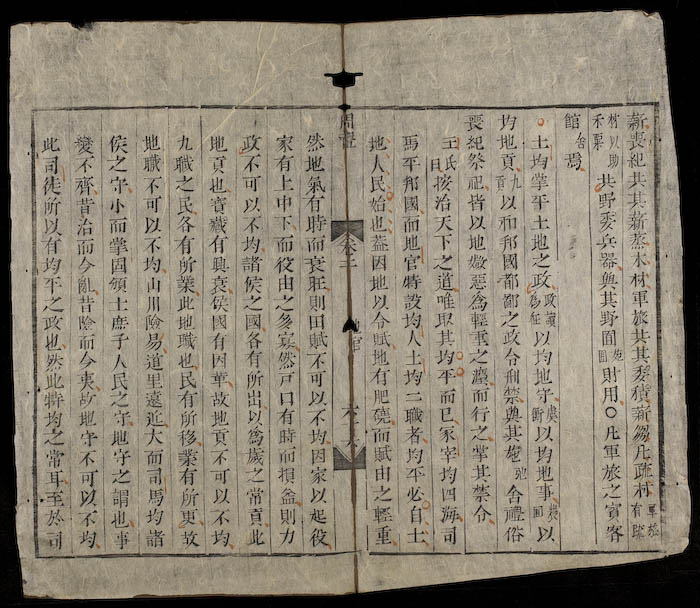 薪喪紀共其薪蒸木材軍旅共其委積薪芻凡疏材軍旅有疏
材以助禾粟共野委兵器與其野囿苑囿財用○凡軍旅之賓客
館舍焉
土均掌平土地之政政讀為征以均地守虞衡以均地事農圃以
均地貢九貢以和邦國都鄙之政令刑禁與其施弛舍禮俗
喪紀祭祀皆以地媺惡為輕重之灋而行之掌其禁令
王氏曰按治天下之道唯取其均平而已冢宰均四海司
馬平邦國而地官特設均人土均二職者均平必自土
地人民始也蓋因地以令賦地有肥磽而賦由之輕重
周禮
卷二
地官
然地氣有時而衰旺則田賦不可以不均因家以起役
家有上中下而役由之多寡然戶口有時而損益則力
政不可以不均諸侯之國各有所出以為歲之常貢此
地貢也寶藏有興衰侯國有因革故地貢不可以不均
九職之民各有所業此地職也民有所移業有所更故
地職不可以不均山川險易道里遠近大而司馬均諸
侯之守小而掌固頒士庶子人民之守地守之謂也事
變不齊昔治而今亂昔險而今夷故地守不可以不均
此司徒所以有均平之政也然此特均之常耳至於司